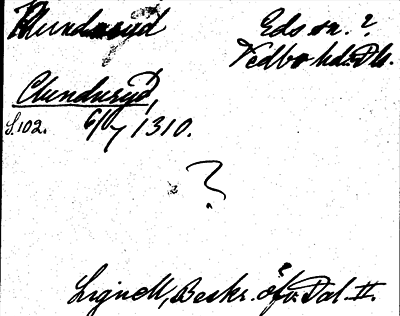 Klundsryd Eds sn. ?
Vedbo hd. Dls.
Clundsryd,
S. 102. 6/7 1310.
?
Lignell, Beskr. öfv. Dal II.